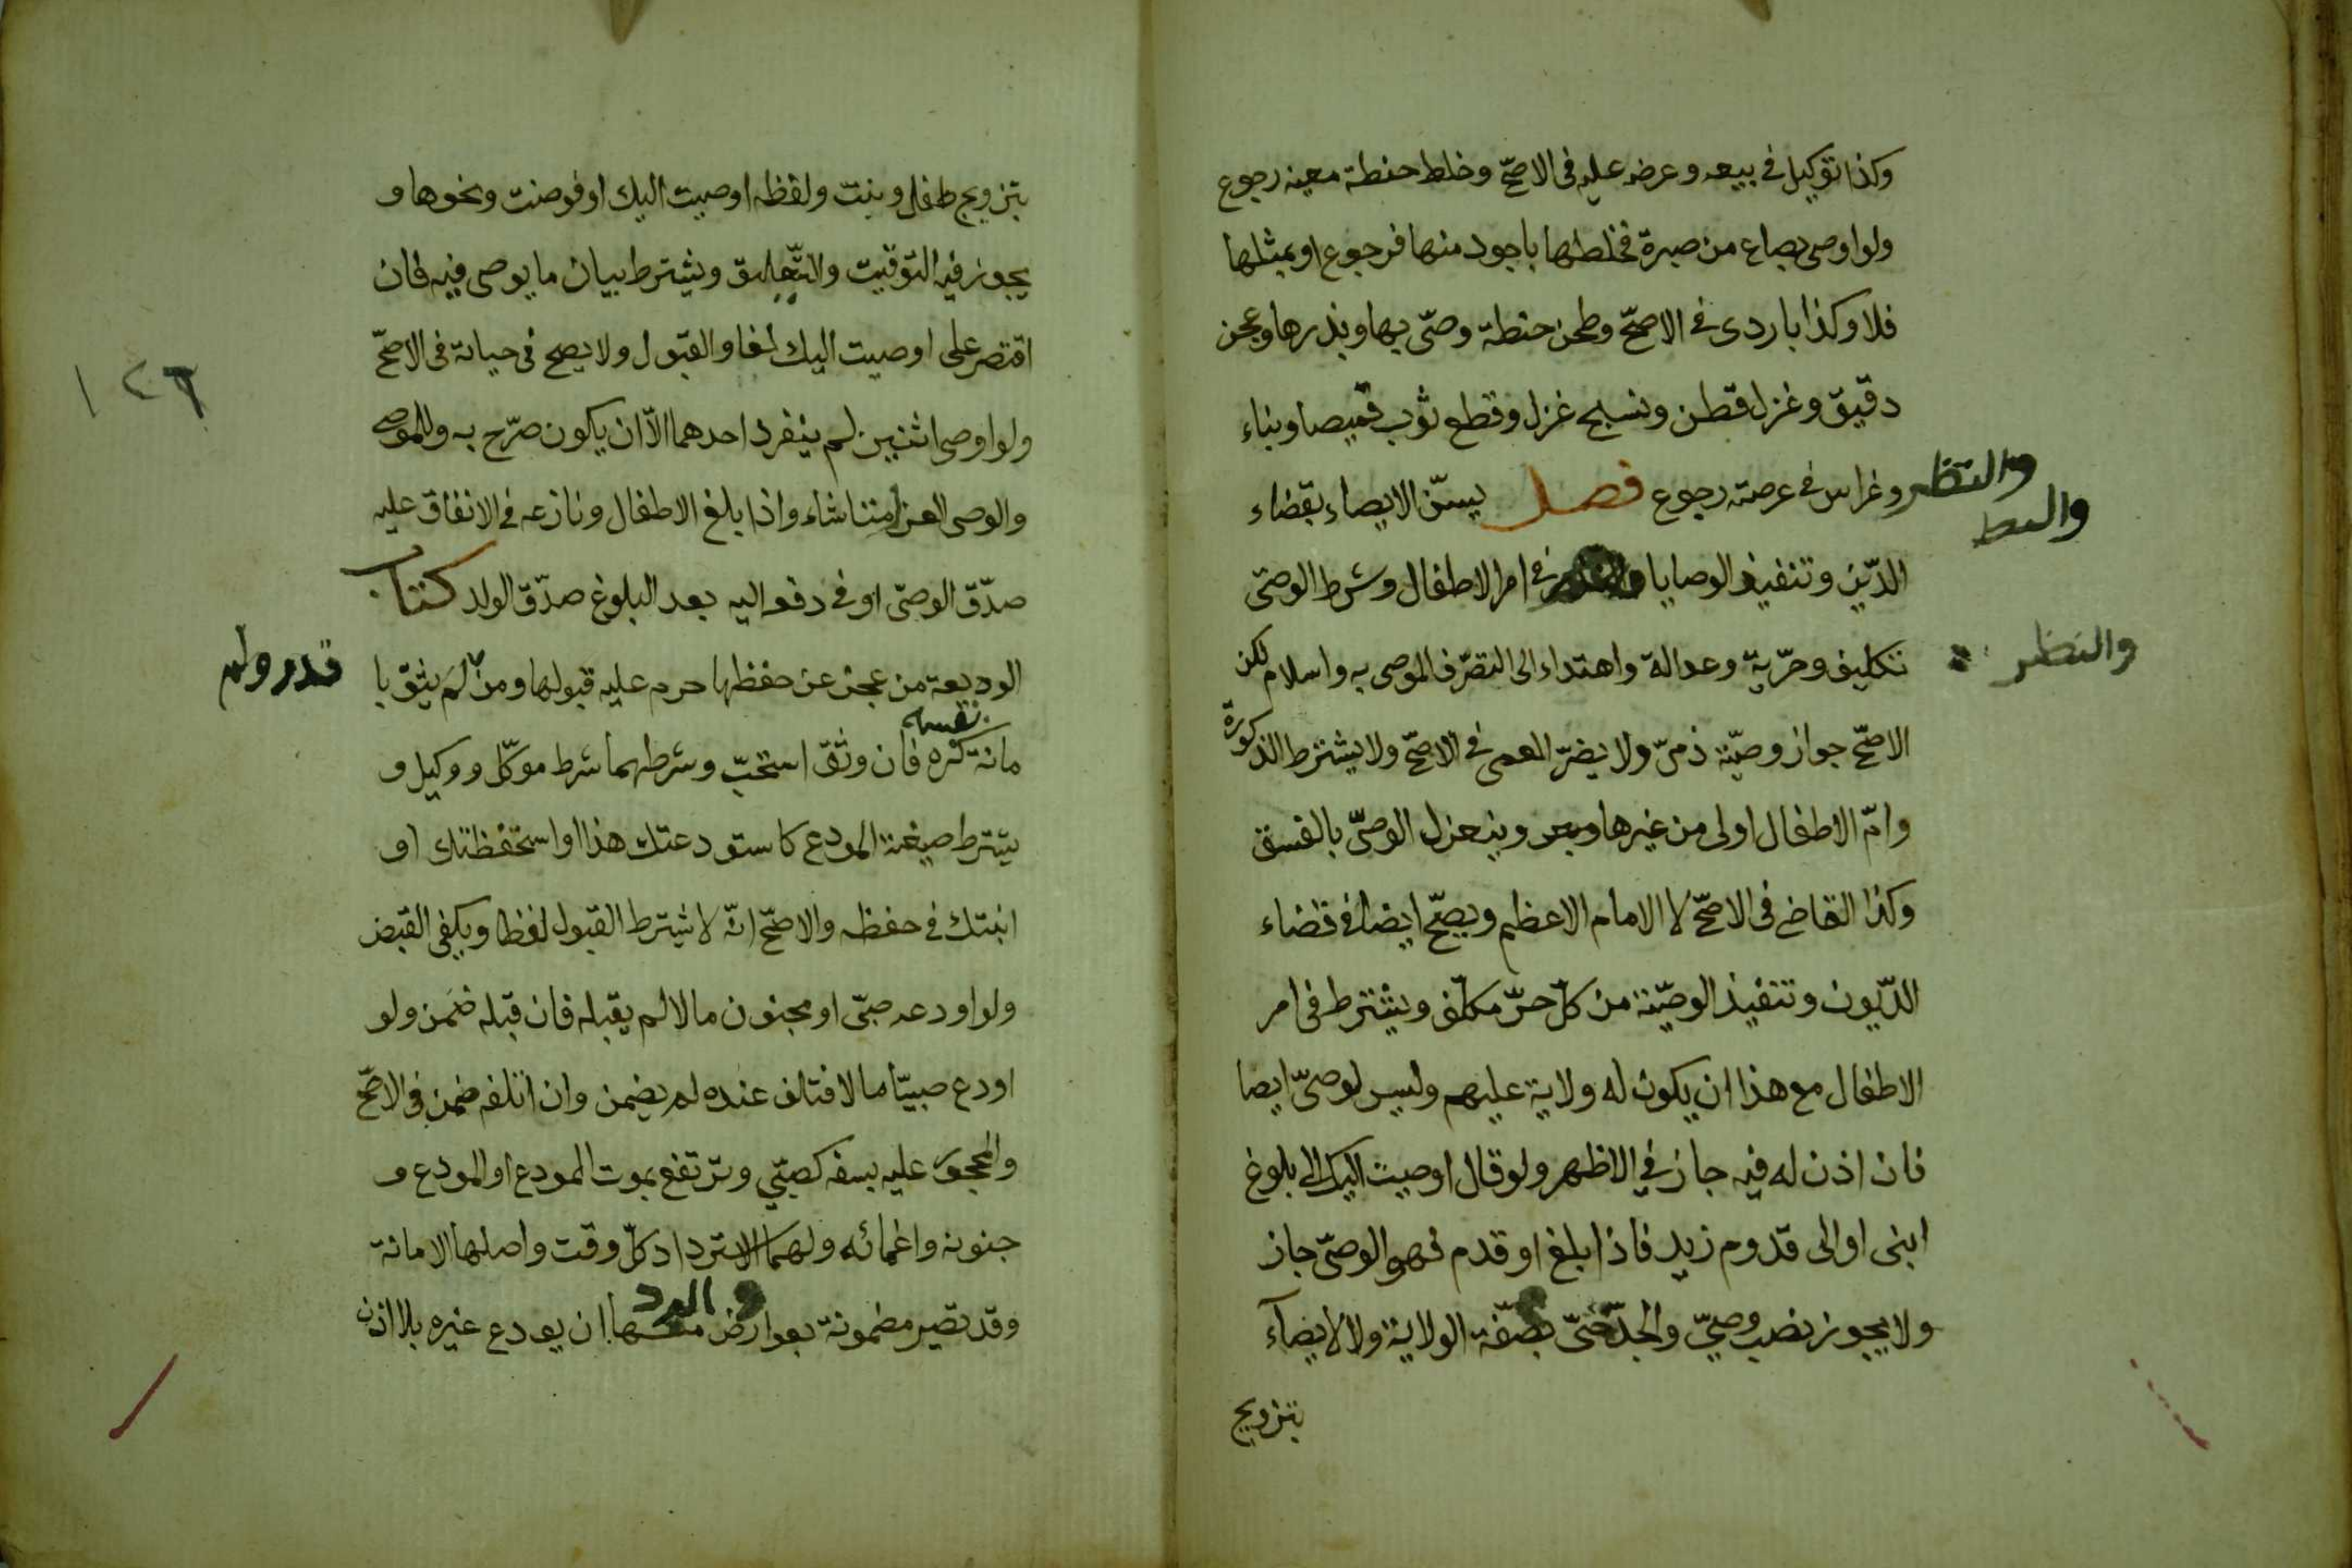 وكذا توكيل في بيعه وعرضه عليه في الاصحّ وخلط حنطة معينه رجوع
ولو اوصى بصاع من صبرة فخلطها باجود منها فرجوع او بمثلها
فلا وكذا باردى في الاصحّ وطحن حنطة وصّى بها وبذرها وعجن
دقيق وغزل قطن ونسج غزل وقطع ثوب قميصا وبناء
وغراس في عرصته رجوع فصل يسنّ الايصاء بقضاء
والنظر
الدّين وتنفيذ الوصايا في امر الاطفال وشرط الوصىّ
تكليف وحرّية وعدالة واهتداء الى التصرّف الموصى به واسلام لكن
والنظر
الاصحّ جواز وصيّة ذمىّ ولا يضرّ العمى في الاصحّ ولا يشترط الذكورة
وامّ الاطفال اولى من غيرها وينعزل الوصىّ بالفسق
وكذا القاضى فى الاصحّ لا الامام الاعظم ويصحّ ايضا في قضاء
الدّيون وتنفيذ الوصيّة من كلّ حرّ مكلّف ويشترط فى امر
الاطفال مع هذا ان يكون له ولاية عليهم وليس لوصىّ ايصا
فان اذن له فيه جاز في الاظهر ولو قال اوصيت اليك الى بلوغ
ابنى او الى قدوم زيد فاذا بلغ او قدم فهو الوصىّ جاز
ولا يجوز نصب وصيّ والجدّ حىّ بصفة الولاية ولا لايصآء
بتزويج
بتزويج طفل وبنت ولفظه اوصيت اليك او فوضت ونحوها و
يجوز فيه التوقيت والتّعليق ويشترط بيان ما يوصى فيه فان
اقتصر على اوصيت اليك لغا والقبول ولا يصح فى حياته فى الاصحّ
١٢٦
ولو اوصى اثنين لم ينفرد احدهما الّا ان يكون صرّح به وللموصى
والوصى العزل متا شاء واذا بلغ الاطفال ونازعه في الانفاق عليه
صدّق الوصىّ او في دفع اليه بعد البلوغ صدّق الولد كتاب
الوديعة من عجز عن حفظها حرم عليه قبولها ومن لم يثق با
قدر ولم
نفسه
مانة كره فان وثق استحبّ وشرطهما شرط موكّل ووكيل و
يشترط صيغة المودع كاستودعتك هذا او استحفظتك او
انبتك في حفظه والاصحّ انّه لا يشترط القبول لفظا ويكفى القبض
ولو اودعه صبىّ او مجنون مالا لم يقبله فان قبله ضمن ولو
اودع صبيّا مالا فتلف عنده لم يضمن وان اتلفه ضمن في الاصحّ
والمحجور عليه بسفه كصبّي وترتفع بموت المودع او المودع و
جنونه واغمائه ولهما الاسترداد كلّ وقت واصلها الامانة
والرد
وقد تصير مضمونة بعوارض منها ان يودع غيره بلا اذن